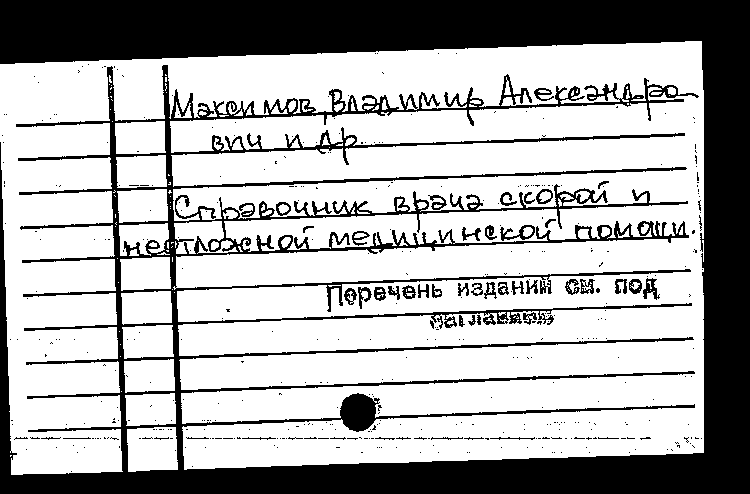 Максимов, Владимир Александро-
вич и др.
Справочник врача скорой и
неотложной медицинской помощи.
Перечень изданий см. под
заглавием